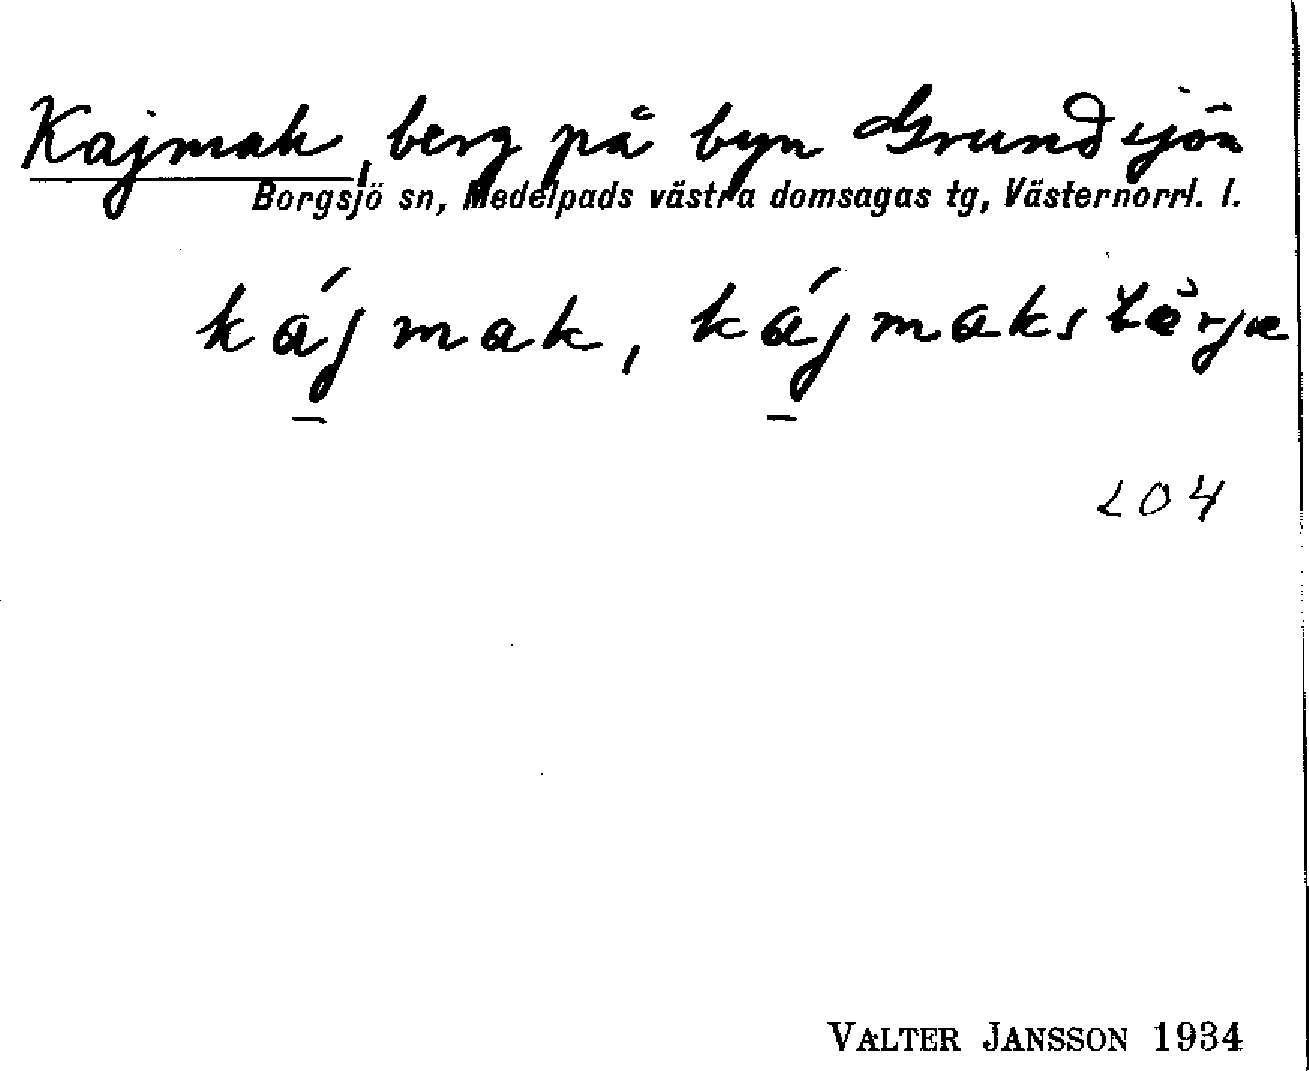 Kajmak, berg på byn Grundsjön
Borgsjö sn, Medelpads västra domsagas tg, Västernorrl. l.
kájmak, kájmaks
204
VALTER JANSSON 1934